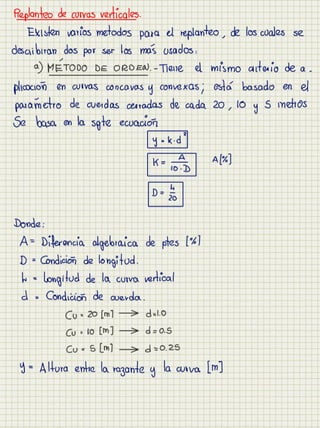 Replanteo de curvas verticales.
Existen varios metodos para el replanteo, de los cuales se
describiran dos por ser los más usados.
a) METODO DE ORDEN.- Tiene el mismo criterio de a-
plicación en curvas concavas y convexas; está basado en el
parametro de cuerdas cerradas de cada 20, 10 y 5 metros
Se basa en la sgte ecuación
y = k·d²
K = A / 10·D   A[%]
D = L / 20
Donde:
A = Diferencia algebraica de ptes [%]
D = Condición de longitud.
L = Longitud de la curva vertical
d = Condición de cuerda.
Cu = 20 [m] → d=1.0
Cu = 10 [m] → d=0.5
Cu = 5 [m] → d=0.25
y = Altura entre la razante y la curva [m]